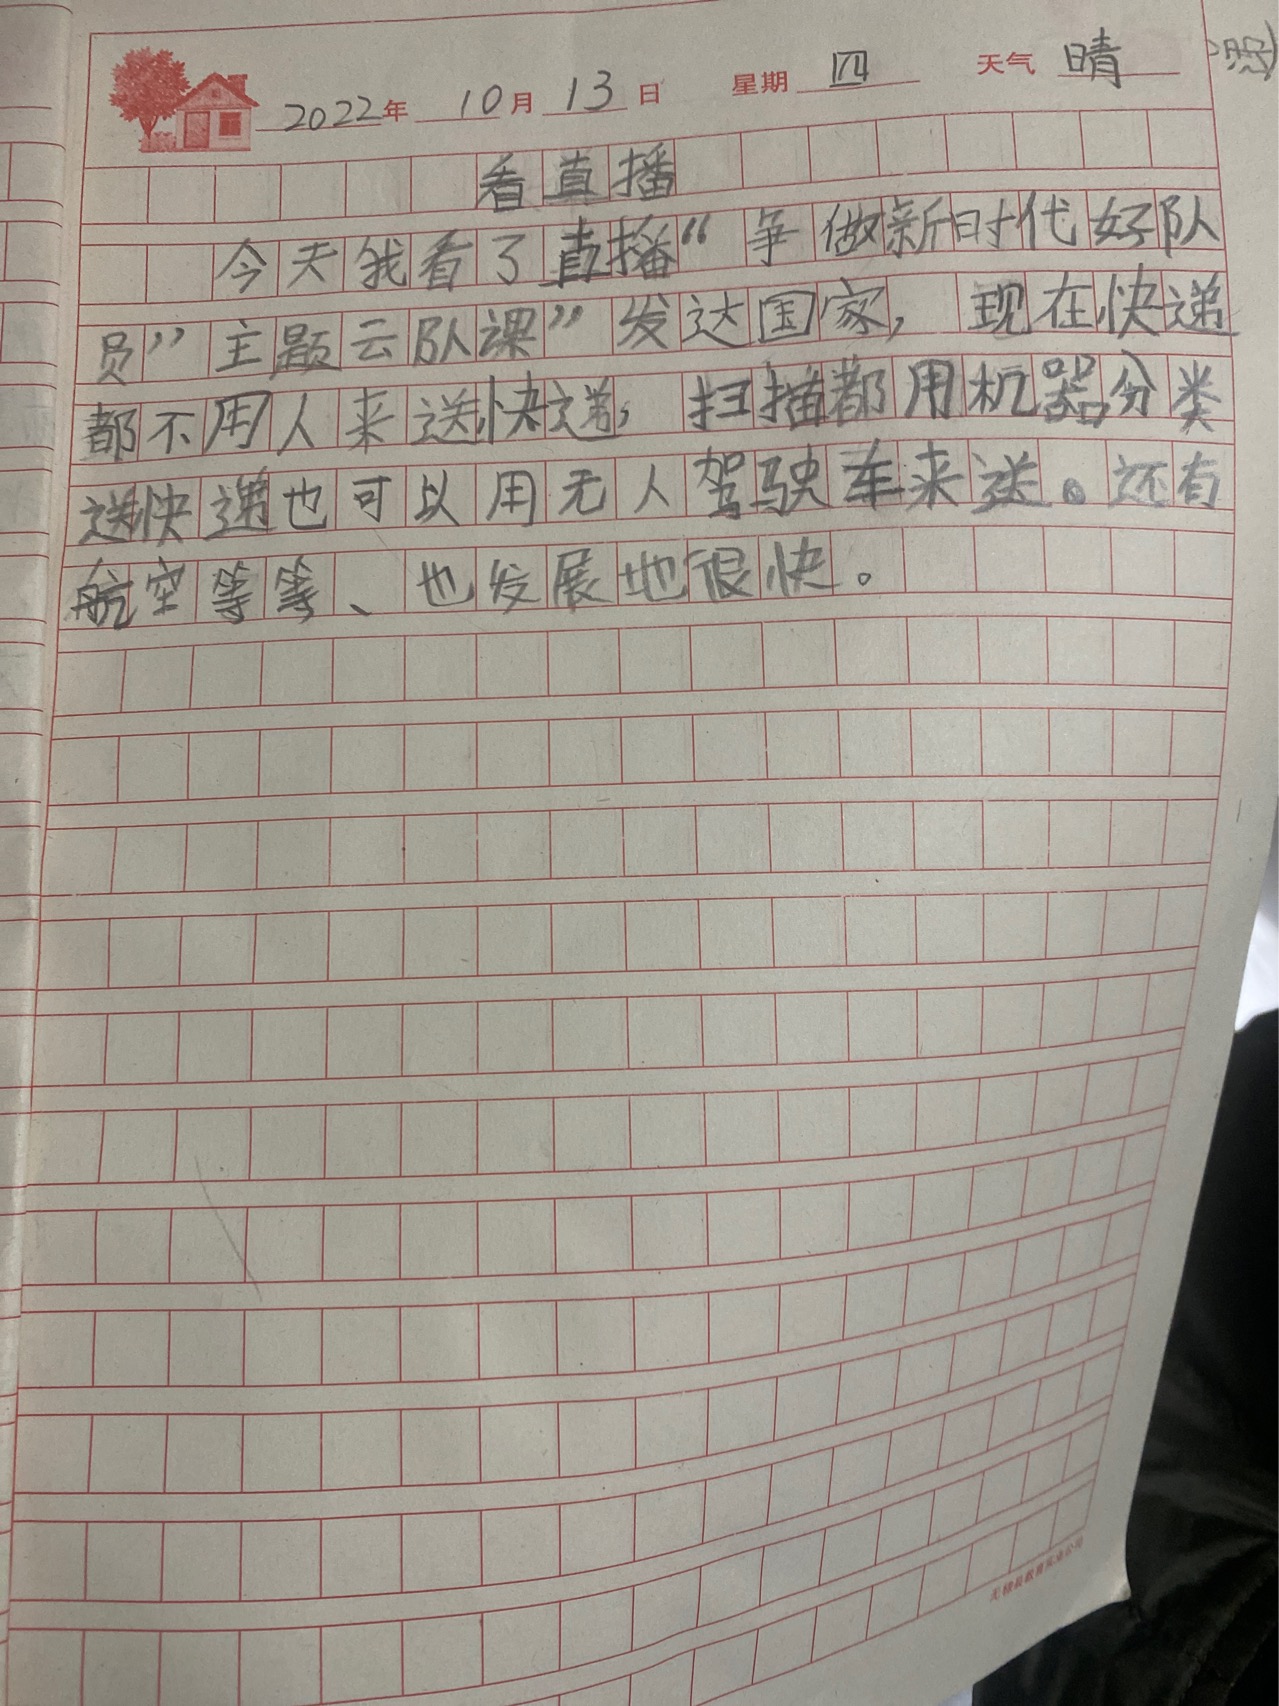 2022年 10月13日 星期四 天气 晴
看直播
今天我看了直播“争做新时代好队
员”主题云队课”发达国家，现在快递
都不用人来送快递，扫描都用机器分类
送快递也可以用无人驾驶车来送。还有
航空等等、也发展地很快。